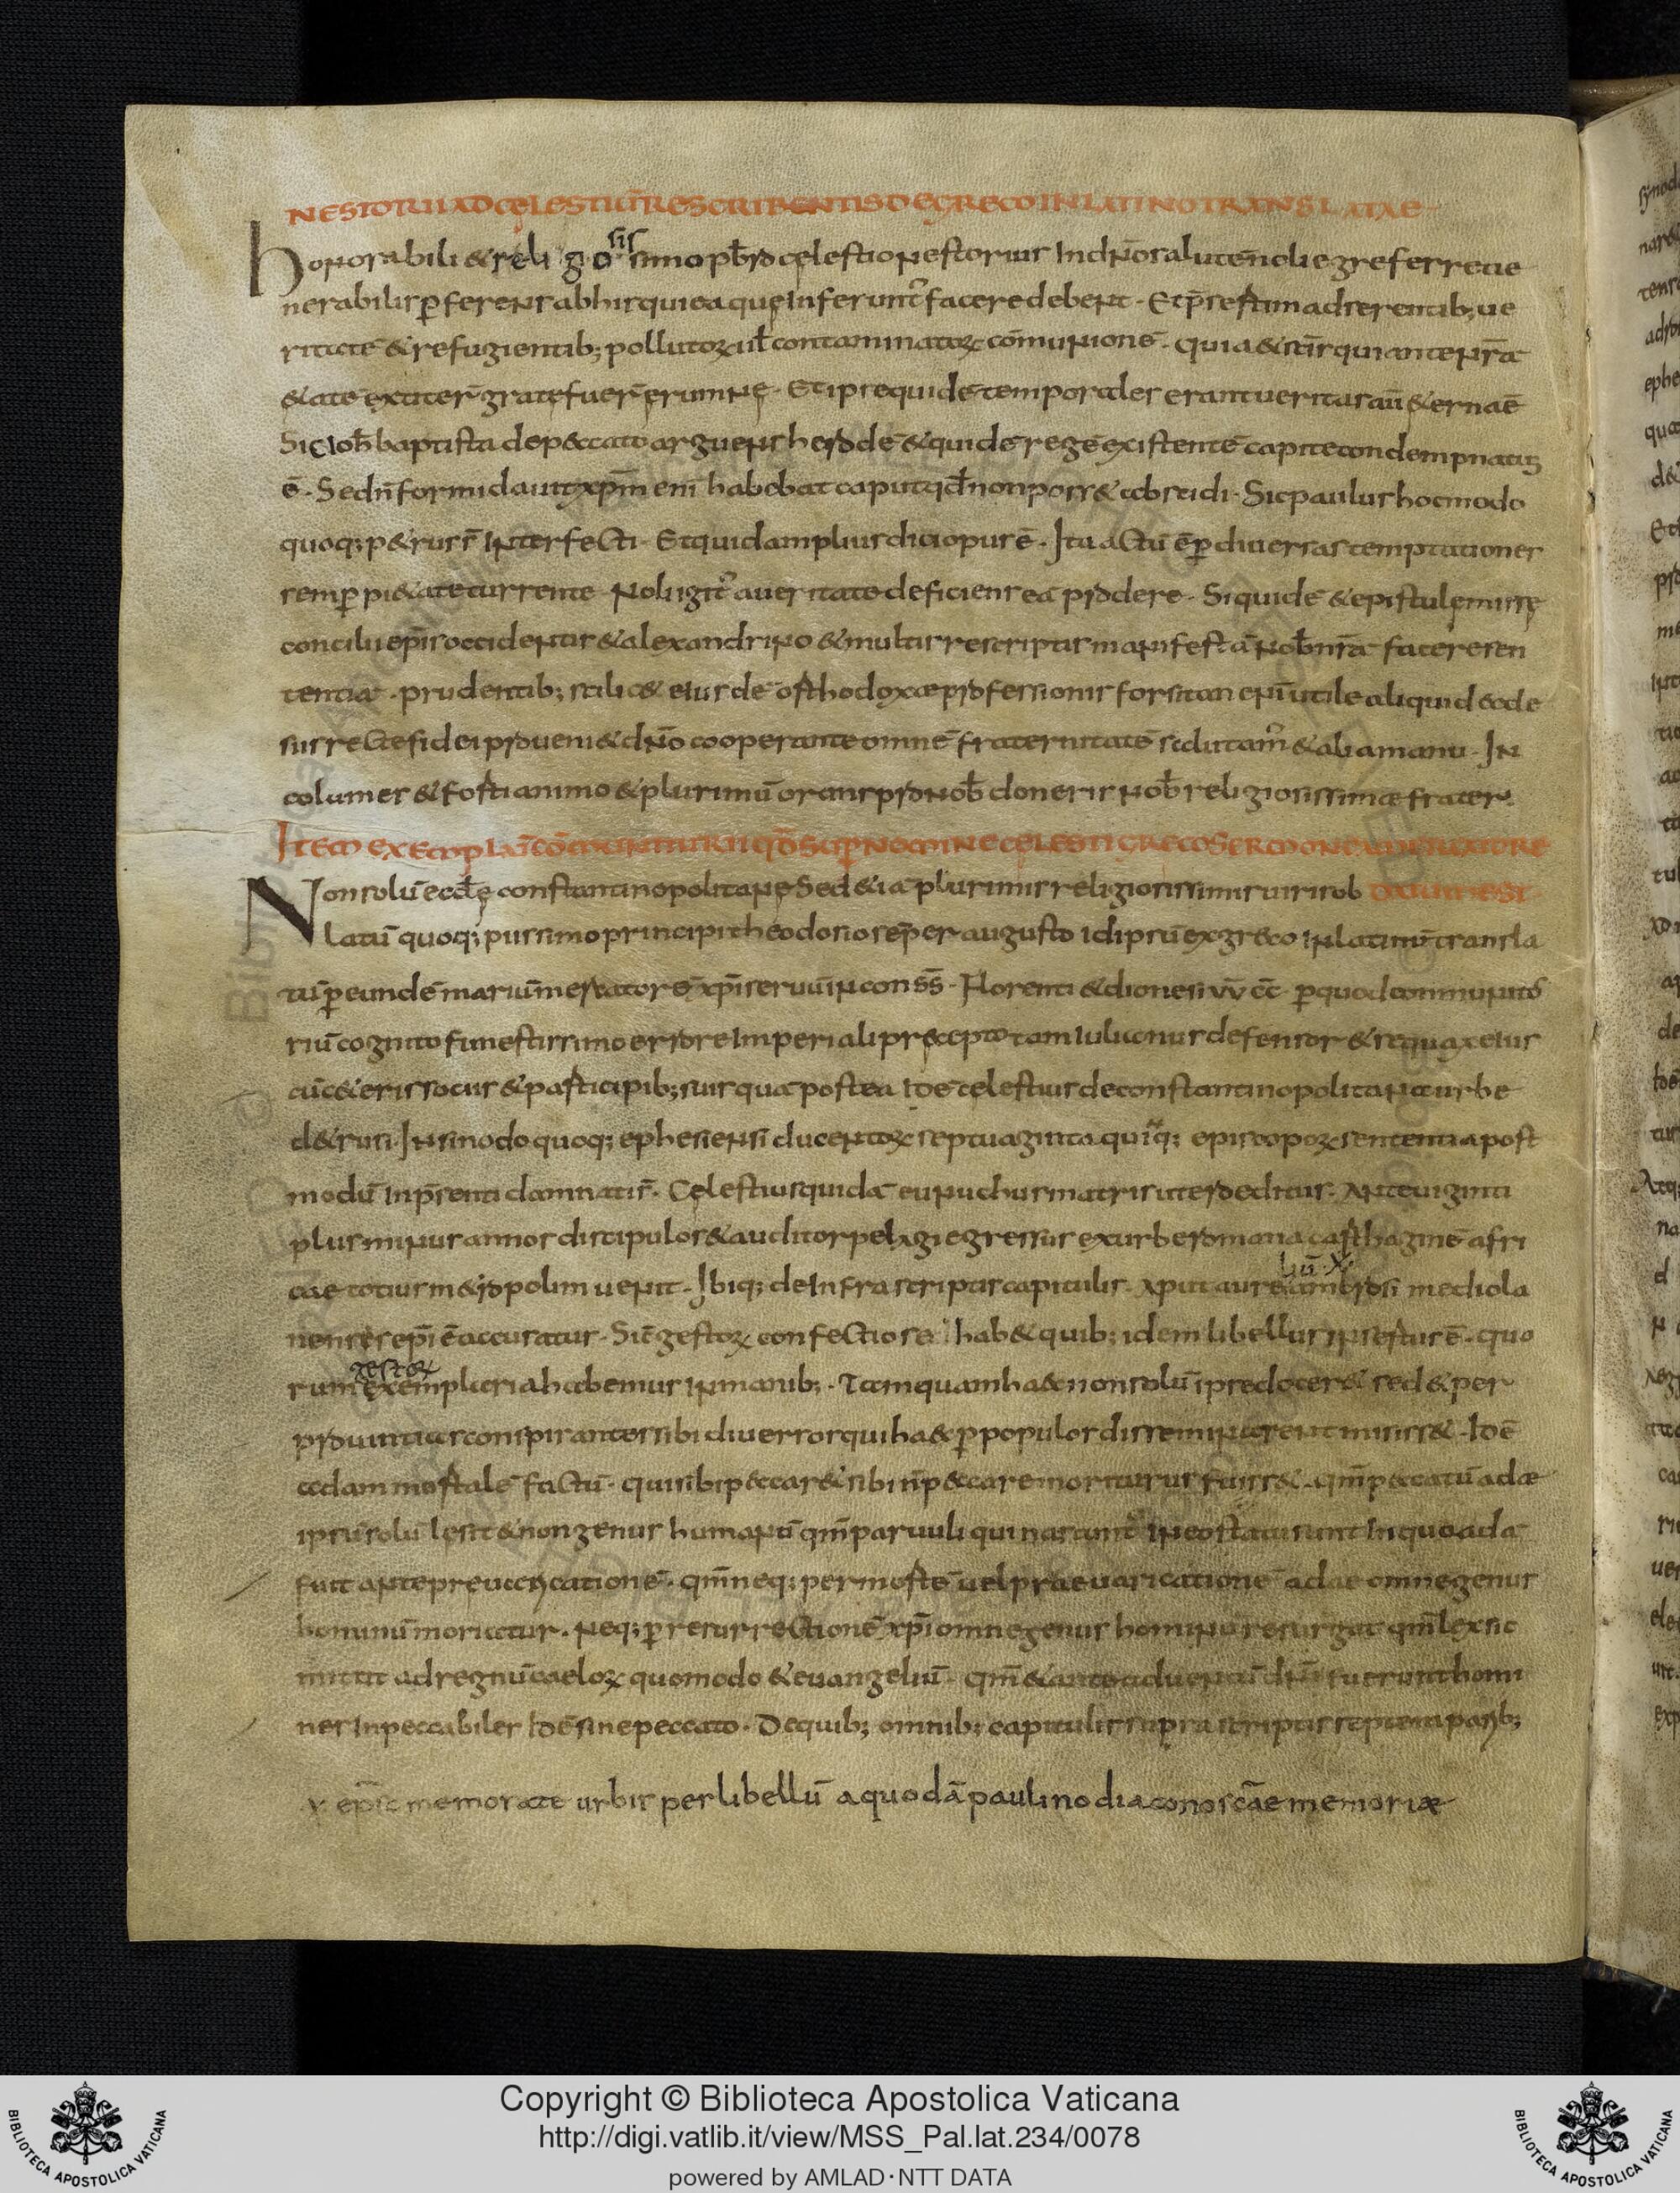 NESTORII AD CĘLESTIŪ RESCRIBENTIS DE GRECO IN LATINO TRANSLATAE
honorabili & religiosissimo pb̄ro cęlestio nestorius In dn̄o salutē noli egre ferre ue
nerabilis p̱ferens ab his qui ea quę Inferunt̄ facere debent. Et p̄sertim adserentib; ue
ritatē & refugientib; pollutoꝝ ul̄ contaminatoꝝ cōmunionē. quia & sc̄is qui ante nr̄ā
&atē extiter̄ gratę fuer̄ ęrumnę. Et ipsę quidē temporales erant ueritas aū &erna ē
Sic Ioh̄ baptista de peccato arguens herodē & quidē regē existentē capite condempnatus
ē. Sed n̄ formidauit xp̄m eni habebat caput qd̄ non poss& abscidi. Sic paulus hoc modo
quoq; p&rus s̄ Interfecti. Et quid amplius dici opus ē. Ita actū ē p̱ diuersas temptationes
semp̱ pi&ate currente. Noli igit̄ a ueritate deficiens eā prodere. Siquidē & epistulę missę
concilii ep̄is occidentis & alexandrino & multis rescriptis manifestā nob̄ nr̄ā facere sen
tentiā. prudentib; scilic& eius dē orthodoxae professionis forsitan eni utile aliquid & de
sus recte fidei proueni& dn̄o cooperante omnē fraternitatē salutam̄ & alia manu. In
columes & forti animo & plurimū orans pro nob̄ doneris nob̄ religiosissimæ frater.
Item exemplā cōmonitorii qd̄ sup̱ nomine cęlesti greco sermone a mercatore
Non solū eccl̄ę constantinopolitanę Sed &iā plurimis religiosissimis uiris ob datum est
latū quoq; piissimo principi theodosio semp̄er augusto id ipsū ex greco In latinū transla
tū p̱ eundē mariū mercatorē xp̄i seruū In conss̄. Florenti & dionesi vv̄ cc̄ p̱ quod commonito
riū cognito funestissimo errore Imperiali precepto tam Iulianus defensor & sequax eius
cū c&eris sociis & participib; suis quā postea Idē cęlestius de constantinopolitana urbe
d&rusi. In sinodo quoq; ephesiensi ducentoꝝ septuaginta quinq; episcopoꝝ sententia post
modū In p̄senti damnati s̄. Cęlestius quidā eunuchus matris utero editus. Ante uiginti
plus minus annos discipulos & auditor pelagi egressus ex urbe romana carthaginē afri
cae totius m&ropolim uenit. Ibiq; de Infra scriptis capitulis aput aurelium ambrosi mediola
nensis ep̄i ē accusatur. Sic̄ gestoꝝ confectio se hab& quib; idem libellus insertus ē. quo
rum gestoꝝ exemplaria habemus In manib;. Tamquam haec non solū ipse docer& sed & per
prouintias conspirantes sibi diuersos qui haec p̱ populos disseminarent misiss&. Idē
adam mortalē factū. qui sibi peccar& sibi n̄ peccare moriturus fuiss&. qm̄ peccatū adæ
ipsū solū lesit & non genus humanū qm̄ paruuli qui nascunt̄ In eo statu sunt In quo adā
fuit ante preuaricationē. qm̄ neq; per mortē uel praeuaricationē adae omne genus
hominū moriatur. Neq; p̱ resurrectionē xp̄i omne genus hominū resurgat qm̄ lex sic
mittit ad regnū caeloꝝ quomodo & euangeliū. qm̄ & ante aduentū dn̄i fuerunt homi
nes Inpeccabiles Id ē sine peccato. De quib; omnib; capitulis supra scriptis septem partib;
ep̄is memorate urbis per libellū a quodā paulino diacono sc̄ae memoriæ
Copyright © Biblioteca Apostolica Vaticana
http://digi.vatlib.it/view/MSS_Pal.lat.234/0078
powered by AMLAD·NTT DATA
BIBLIOTECA APOSTOLICA VATICANA
BIBLIOTECA APOSTOLICA VATICANA